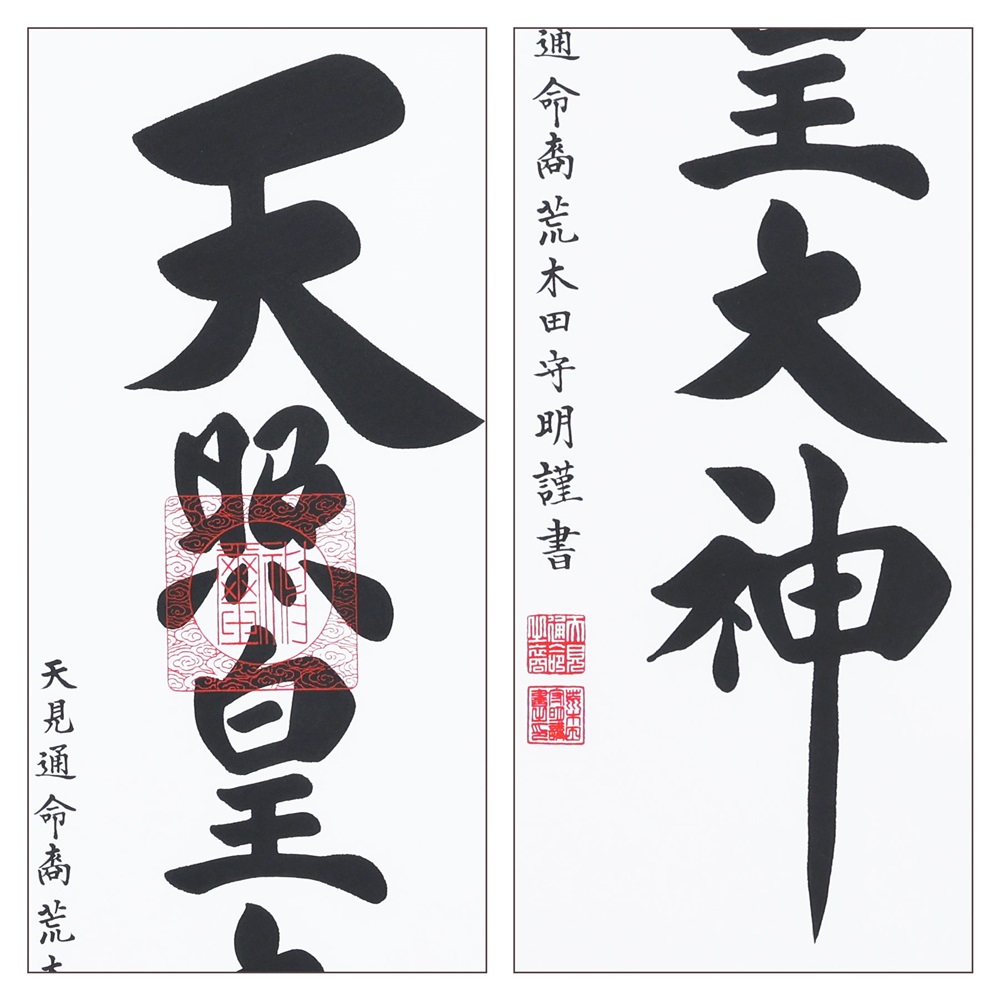 天照皇大
天見通命裔荒木
通命裔荒木田守明謹書
皇大神